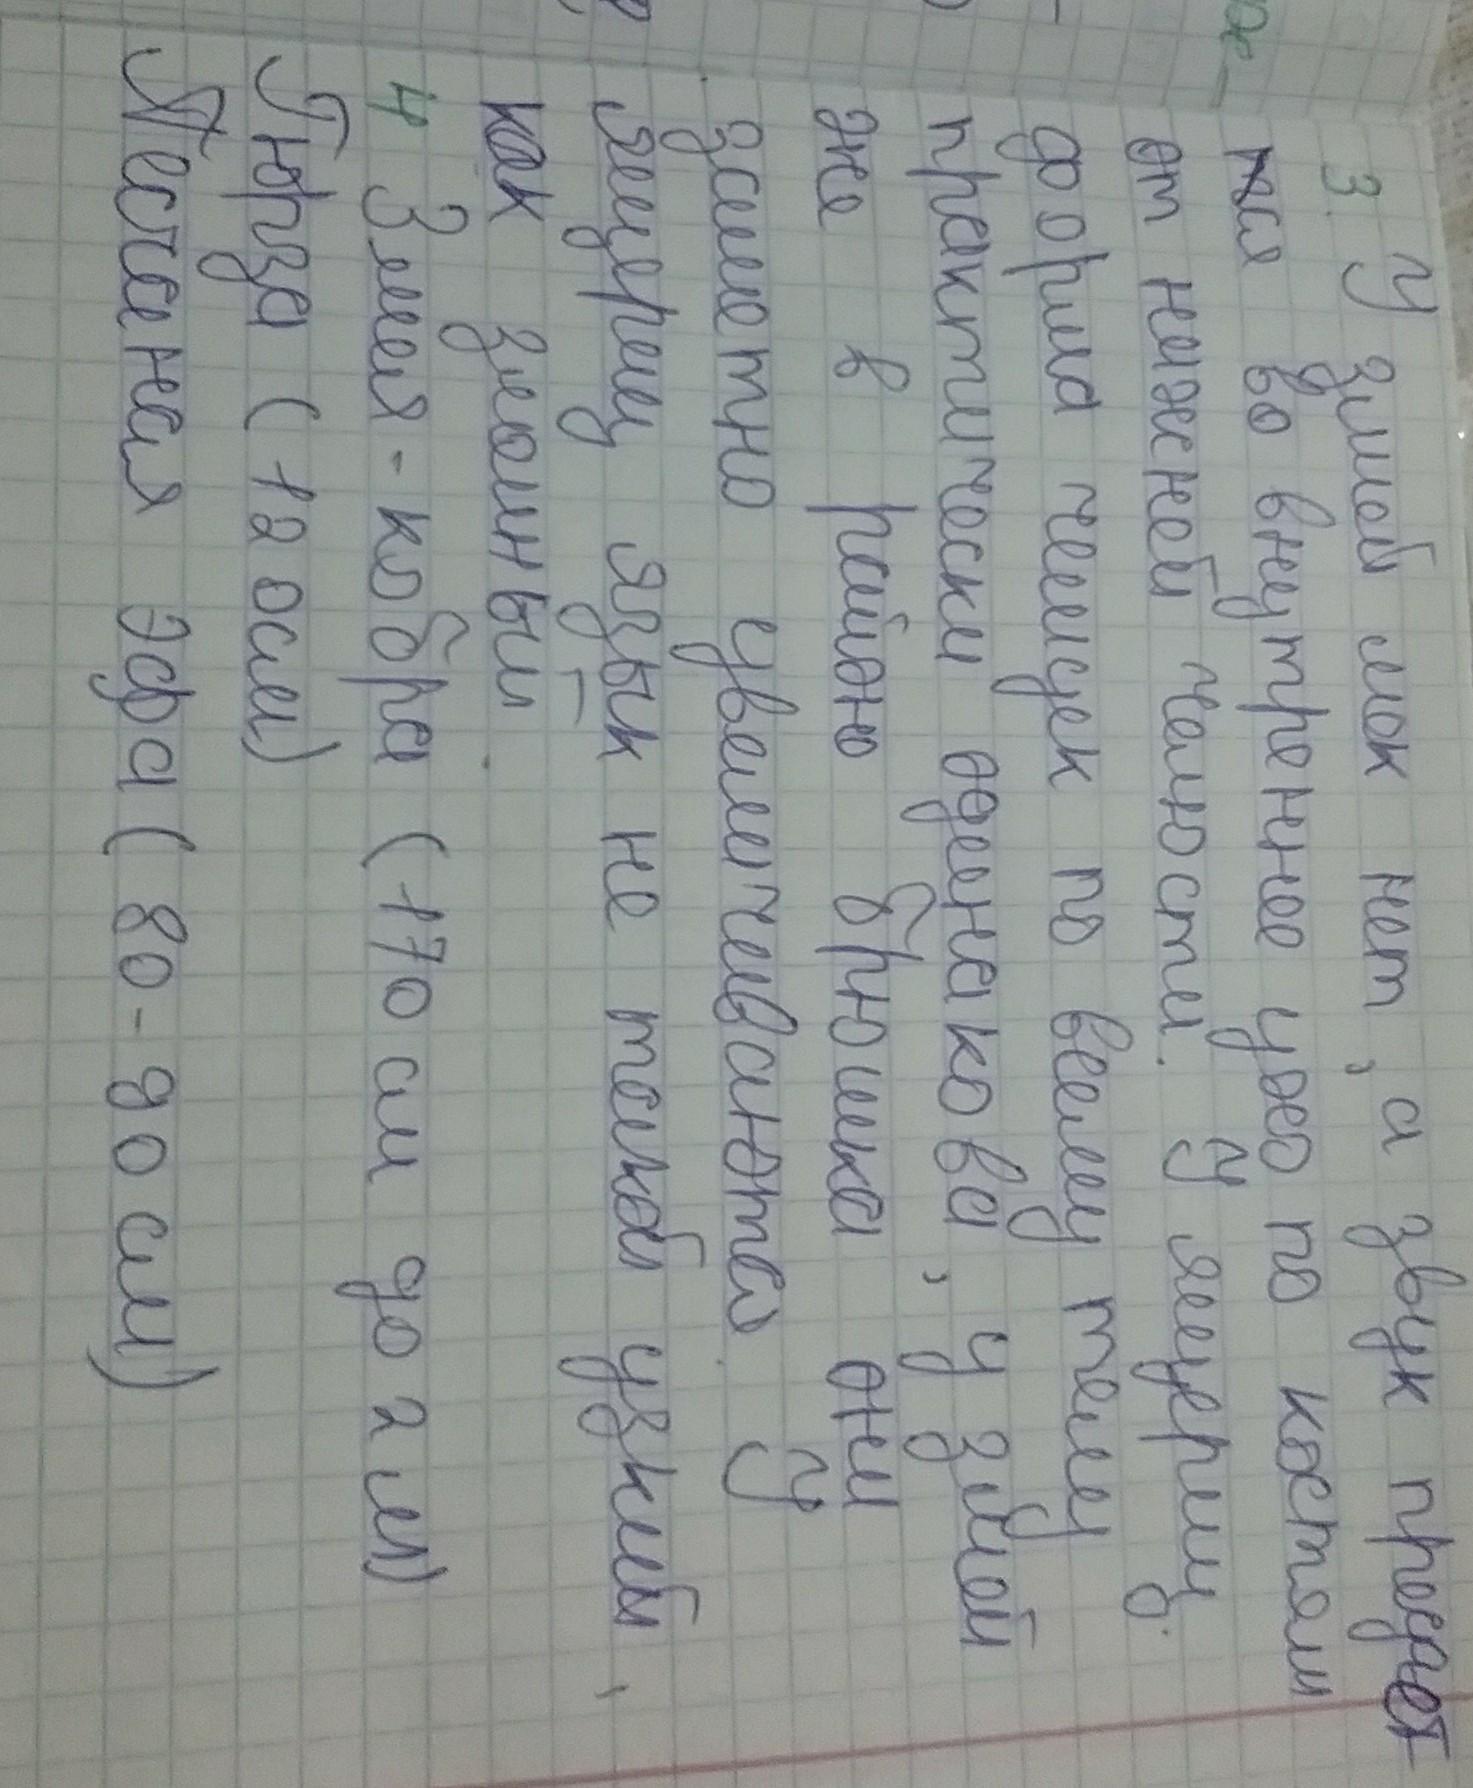 3. У змей мок нет, а звук предает
тся во внутреннее ухо по костям
от нижней челюсти. У ящериц
форма чешуек по всему телу
практически одинакова, у змей
же в районе брюшка они
заметно увеличиваются. У
ящериц язык не такой узкий,
как змеиный.
4 Змея-кобра (170 см до 2 м)
Гюрза (120 см)
Песчаная эфа (80-90 см)